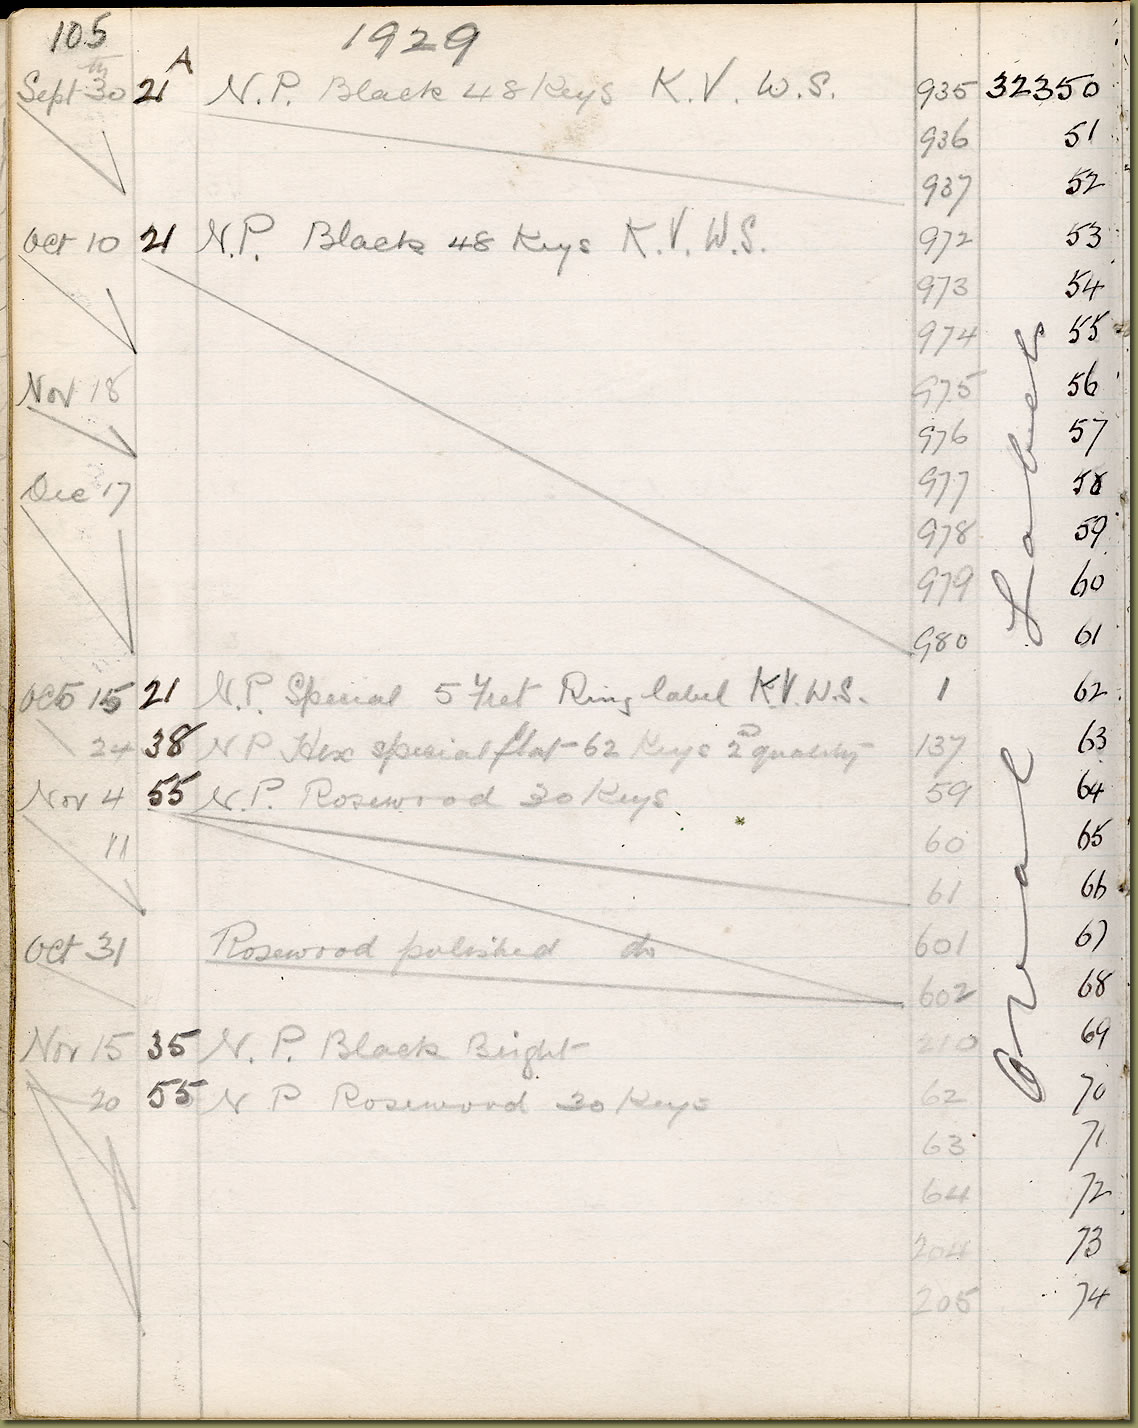 105 1929
A
Sept 30 21 N.P. Black 48 Keys K.V. W.S. 935 32350
936 51
937 52
Oct 10 21 N.P. Black 48 Keys K.V. W.S. 972 53
973 54
974 55
Nov 18 975 56
976 57
Dec 17 977 58
978 59
979 60
980 61
Oct 15 21 N.P. Special 5 Feet Ring label K.V.W.S. 1 62
24 38 N P Hex special flat 62 Keys 2nd quality 137 63
Nov 4 55 N.P. Rosewood 30 Keys 59 64
11 60 65
61 66
Oct 31 Rosewood polished do 601 67
602 68
Nov 15 35 N. P. Black Bright 210 69
20 55 N P Rosewood 30 Keys 62 70
63 71
64 72
204 73
205 74
Oval Labels